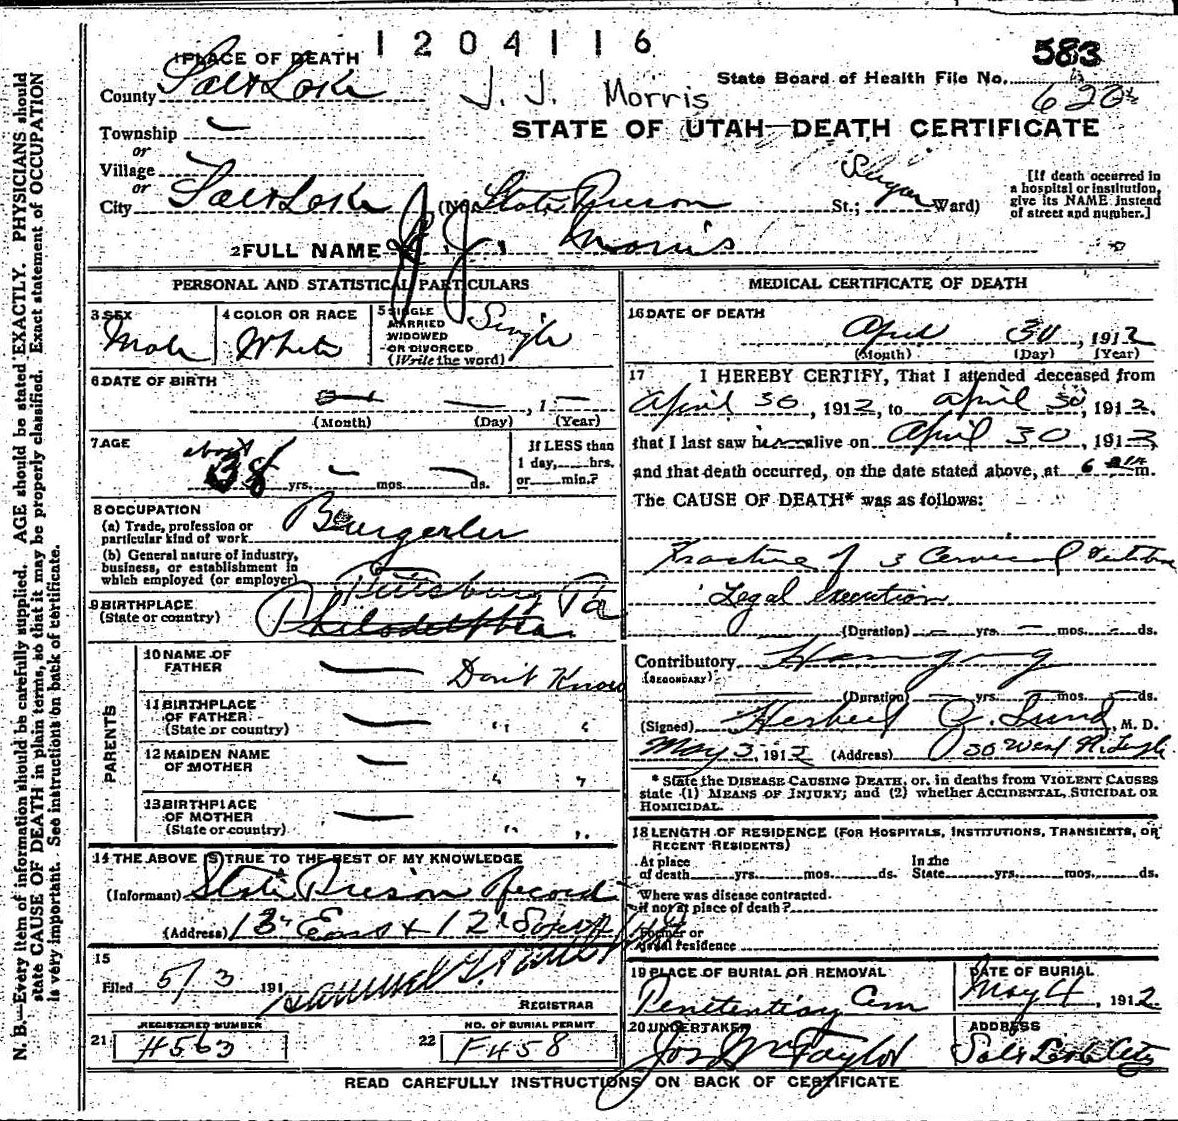 1 2 0 4 1 1 6
583
1 PLACE OF DEATH
State Board of Health File No.
County Salt Lake
J. J. Morris
620
STATE OF UTAH—DEATH CERTIFICATE
Township —
or
Village
or
City Salt Lake (No. State Prison St.; Sugar Ward)
[If death occurred in
a hospital or institution,
give its NAME instead
of street and number.]
2 FULL NAME J. J. Morris
PERSONAL AND STATISTICAL PARTICULARS
3 SEX
Male
4 COLOR OR RACE
White
5 SINGLE
MARRIED
WIDOWED
OR DIVORCED
(Write the word)
Single
6 DATE OF BIRTH
— — , 1 —
(Month) (Day) (Year)
7 AGE
about
38 yrs. — mos. — ds.
If LESS than
1 day,......hrs.
or......min.?
8 OCCUPATION
(a) Trade, profession or
particular kind of work
Burgerler
(b) General nature of industry,
business, or establishment in
which employed (or employer)
9 BIRTHPLACE
(State or country)
Pittsburg Pa
Philadelphia
PARENTS
10 NAME OF
FATHER
— Don't Know
11 BIRTHPLACE
OF FATHER
(State or country)
— " "
12 MAIDEN NAME
OF MOTHER
— " "
13 BIRTHPLACE
OF MOTHER
(State or country)
— " "
14 THE ABOVE IS TRUE TO THE BEST OF MY KNOWLEDGE
(Informant) State Prison Record
(Address) 13" East & 12" South
15
Filed 5/3 191
REGISTRAR
21 REGISTERED NUMBER
4563
22 NO. OF BURIAL PERMIT
F458
MEDICAL CERTIFICATE OF DEATH
16 DATE OF DEATH
April 30, 1912
(Month) (Day) (Year)
17 I HEREBY CERTIFY, That I attended deceased from
April 30, 1912, to April 30, 1912,
that I last saw h alive on April 30, 1912,
and that death occurred, on the date stated above, at 6 m.
The CAUSE OF DEATH* was as follows:
Fracture of 3 Cervical Vertebrae
Legal Execution
(Duration) — yrs. — mos. — ds.
Contributory Hanging
(SECONDARY)
(Duration) — yrs. — mos. — ds.
(Signed) Herbert Z. Lund, M. D.
May 3, 1912 (Address) 30 West N. Temple
* State the DISEASE CAUSING DEATH, or, in deaths from VIOLENT CAUSES
state (1) MEANS OF INJURY; and (2) whether ACCIDENTAL, SUICIDAL OR
HOMICIDAL.
18 LENGTH OF RESIDENCE (FOR HOSPITALS, INSTITUTIONS, TRANSIENTS, OR
RECENT RESIDENTS)
At place
of death......yrs......mos......ds.
In the
State......yrs......mos......ds.
Where was disease contracted.
if not at place of death?
Former or
usual residence
19 PLACE OF BURIAL OR REMOVAL
Penitentiary Cem
DATE OF BURIAL
May 4, 1912
20 UNDERTAKER
Jos Wm Taylor
ADDRESS
Salt Lake City
READ CAREFULLY INSTRUCTIONS ON BACK OF CERTIFICATE
N. B.—Every item of information should be carefully supplied. AGE should be stated EXACTLY. PHYSICIANS should
state CAUSE OF DEATH in plain terms, so that it may be properly classified. Exact statement of OCCUPATION
is very important. See instructions on back of certificate.